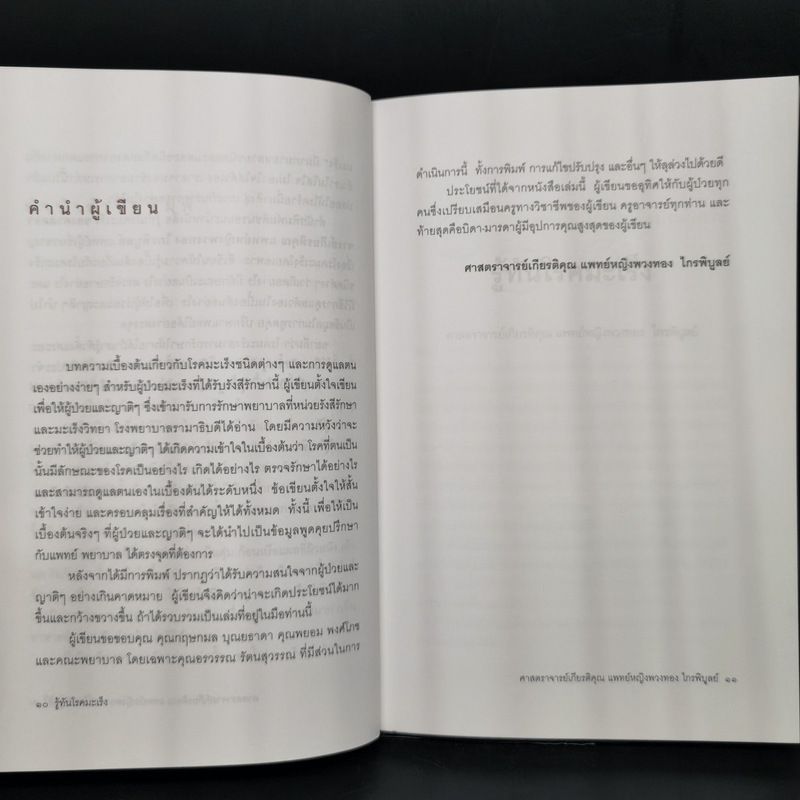 คำนำผู้เขียน
บทความเบื้องต้นเกี่ยวกับโรคมะเร็งชนิดต่างๆ และการดูแลตน
เองอย่างง่ายๆ สำหรับผู้ป่วยมะเร็งที่ได้รับรังสีรักษานี้ ผู้เขียนตั้งใจเขียน
เพื่อให้ผู้ป่วยและญาติๆ ซึ่งเข้ามารับการรักษาพยาบาลที่หน่วยรังสีรักษา
และมะเร็งวิทยา โรงพยาบาลรามาธิบดีได้อ่าน โดยมีความหวังว่าจะ
ช่วยทำให้ผู้ป่วยและญาติๆ ได้เกิดความเข้าใจในเบื้องต้นว่า โรคที่ตนเป็น
นั้นมีลักษณะของโรคเป็นอย่างไร เกิดได้อย่างไร ตรวจรักษาได้อย่างไร
และสามารถดูแลตนเองในเบื้องต้นได้ระดับหนึ่ง ข้อเขียนตั้งใจให้สั้น
เข้าใจง่าย และครอบคลุมเรื่องที่สำคัญให้ได้ทั้งหมด ทั้งนี้ เพื่อให้เป็น
เบื้องต้นจริงๆ ที่ผู้ป่วยและญาติๆ จะได้นำไปเป็นข้อมูลพูดคุยปรึกษา
กับแพทย์ พยาบาล ได้ตรงจุดที่ต้องการ
หลังจากได้มีการพิมพ์ ปรากฏว่าได้รับความสนใจจากผู้ป่วยและ
ญาติๆ อย่างเกินคาดหมาย ผู้เขียนจึงคิดว่าน่าจะเกิดประโยชน์ได้มาก
ขึ้นและกว้างขวางขึ้น ถ้าได้รวบรวมเป็นเล่มที่อยู่ในมือท่านนี้
ผู้เขียนขอขอบคุณ คุณกฤษกมล บุณยธาดา คุณพยอม พงศ์โภช
และคณะพยาบาล โดยเฉพาะคุณอรวรรณ รัตนสุวรรณ ที่มีส่วนในการ
๑๐ รู้ทันโรคมะเร็ง
ดำเนินการนี้ ทั้งการพิมพ์ การแก้ไขปรับปรุง และอื่นๆ ให้ลุล่วงไปด้วยดี
ประโยชน์ที่ได้จากหนังสือเล่มนี้ ผู้เขียนขออุทิศให้กับผู้ป่วยทุก
คนซึ่งเปรียบเสมือนครูทางวิชาชีพของผู้เขียน ครูอาจารย์ทุกท่าน และ
ท้ายสุดคือบิดา-มารดาผู้มีอุปการคุณสูงสุดของผู้เขียน
ศาสตราจารย์เกียรติคุณ แพทย์หญิงพวงทอง ไกรพิบูลย์
ศาสตราจารย์เกียรติคุณ แพทย์หญิงพวงทอง ไกรพิบูลย์ ๑๑